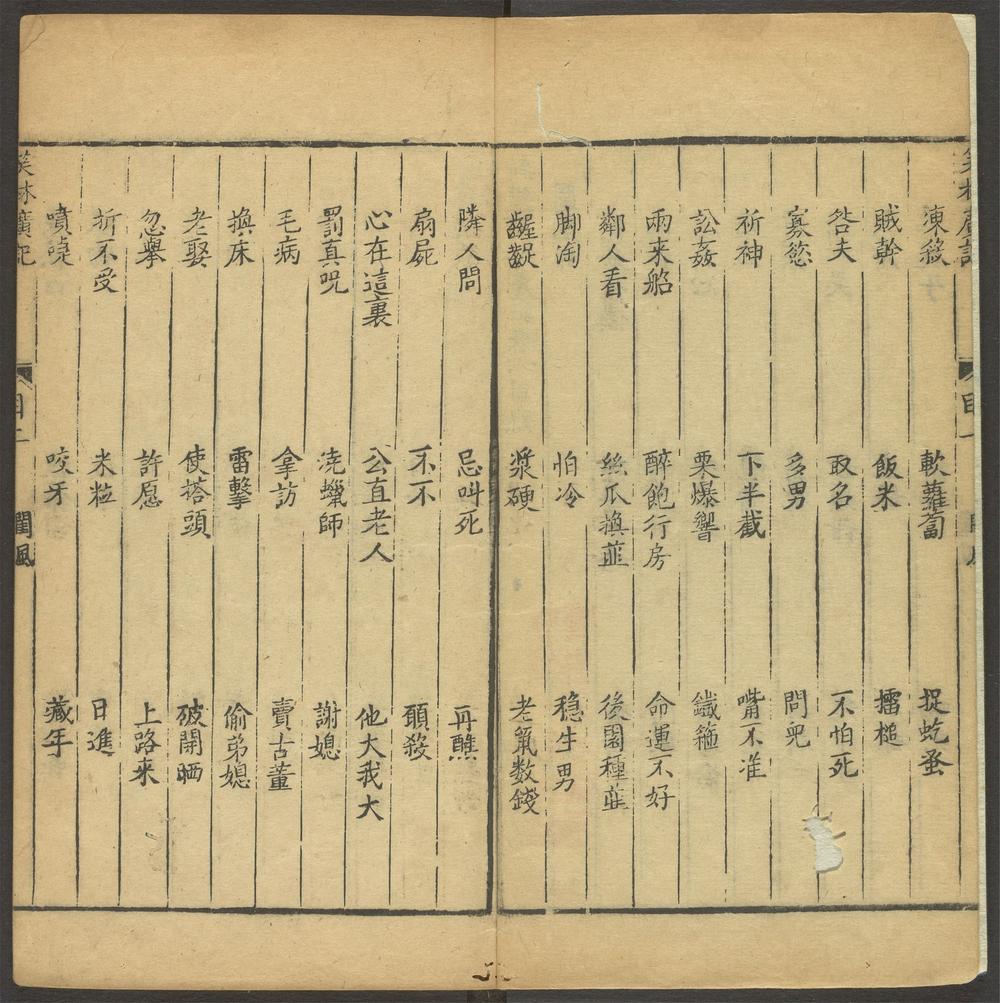 凍殺 軟蘿蔔 捉虼蚤
賊幹 飯米 擂槌
咎夫 取名 不怕死
寡慾 多男 問兕
祈神 下半截 嘴不准
訟姦 栗爆響 鐵箍
兩来船 醉飽行房 命運不好
鄰人看 絲瓜換韮 後園種韮
脚淘 怕冷 穩生男
齷齪 漿硬 老氣数錢
隣人問 忌叫死 再醮
扇屍 不不 頭殺
心在這裏 公直老人 他大我大
罰真咒 澆蠟師 謝媳
毛病 拿訪 賣古董
換床 雷擊 偷弟媳
老娶 使搭頭 破開晒
忽舉 許愿 上路来
折不受 米粒 日進
噴嚏 咬牙 藏年
笑林廣記 目二 閨風